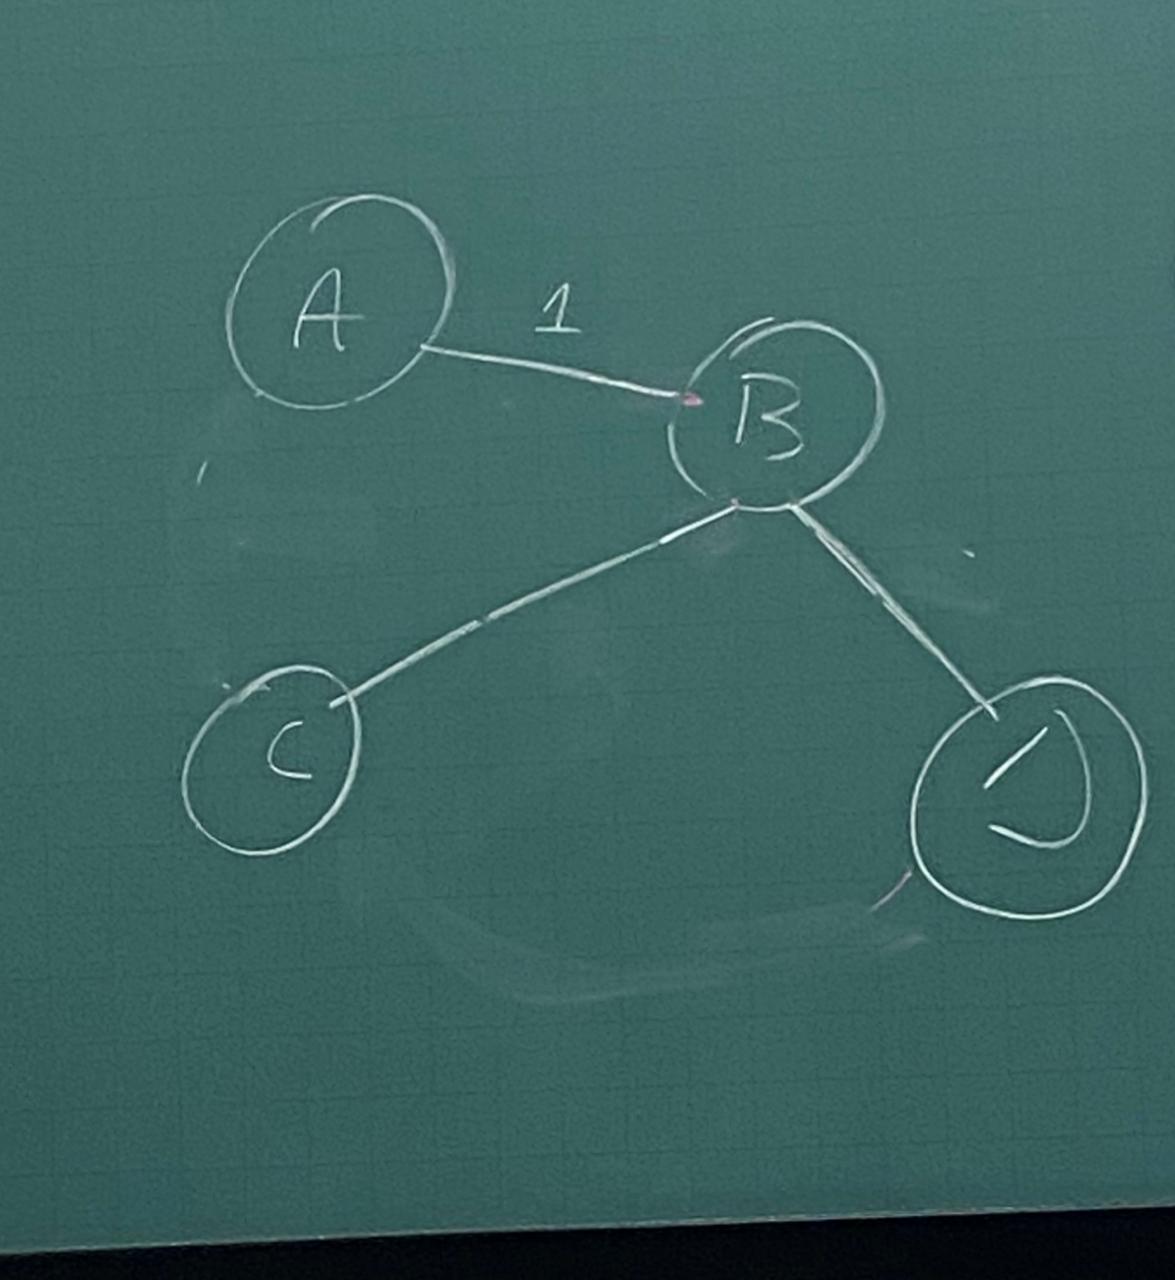 A
1
B
C
D